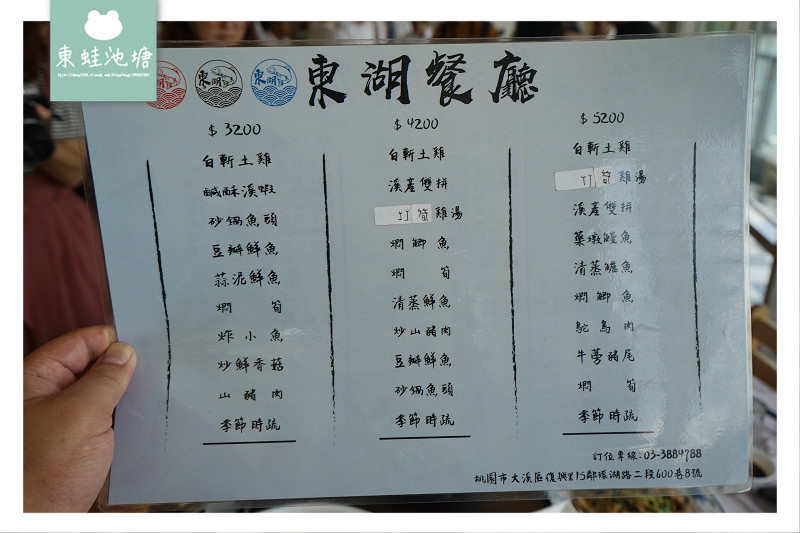 東蛙池塘
東湖餐廳
$3200
白斬土雞
鹹酥溪蝦
砂鍋魚頭
豆瓣鮮魚
蒜泥鮮魚
燜筍
炸小魚
炒鮮香菇
山豬肉
季節時疏
$4200
白斬土雞
溪產雙拼
竹筍雞湯
燜鯽魚
燜筍
清蒸鮮魚
炒山豬肉
豆瓣鮮魚
砂鍋魚頭
季節時疏
$5200
白斬土雞
竹筍雞湯
溪產雙拼
藥燉鰻魚
清蒸鱸魚
燜鯽魚
鴕鳥肉
牛蒡豬尾
燜筍
季節時疏
訂位專線:03-3884788
桃園市大溪區復興里15鄰環湖路二段600巷8號